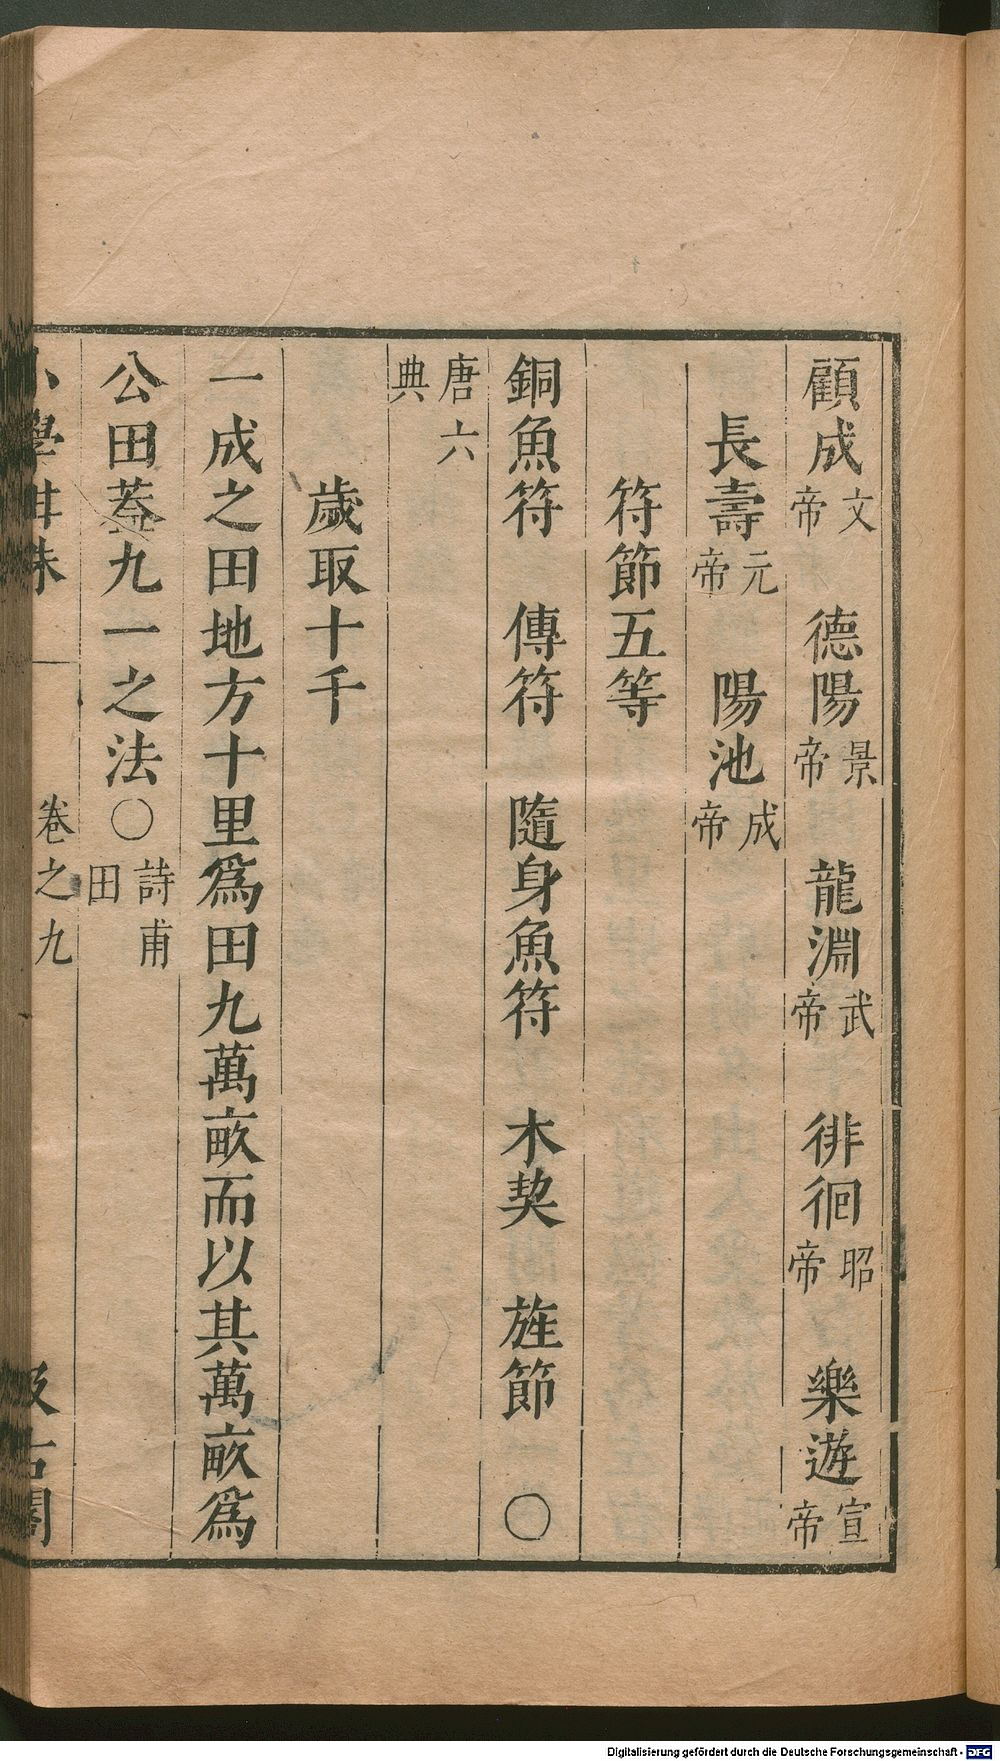 顧成文帝　德陽景帝　龍淵武帝　徘徊昭帝　樂遊宣帝
長壽元帝　陽池成帝
符節五等
銅魚符　傳符　隨身魚符　木契　旌節○
唐六典
歲取十千
一成之田地方十里爲田九萬畝而以其萬畝爲
公田蓋九一之法○詩甫田
卷之九
Digitalisierung gefördert durch die Deutsche Forschungsgemeinschaft - DFG